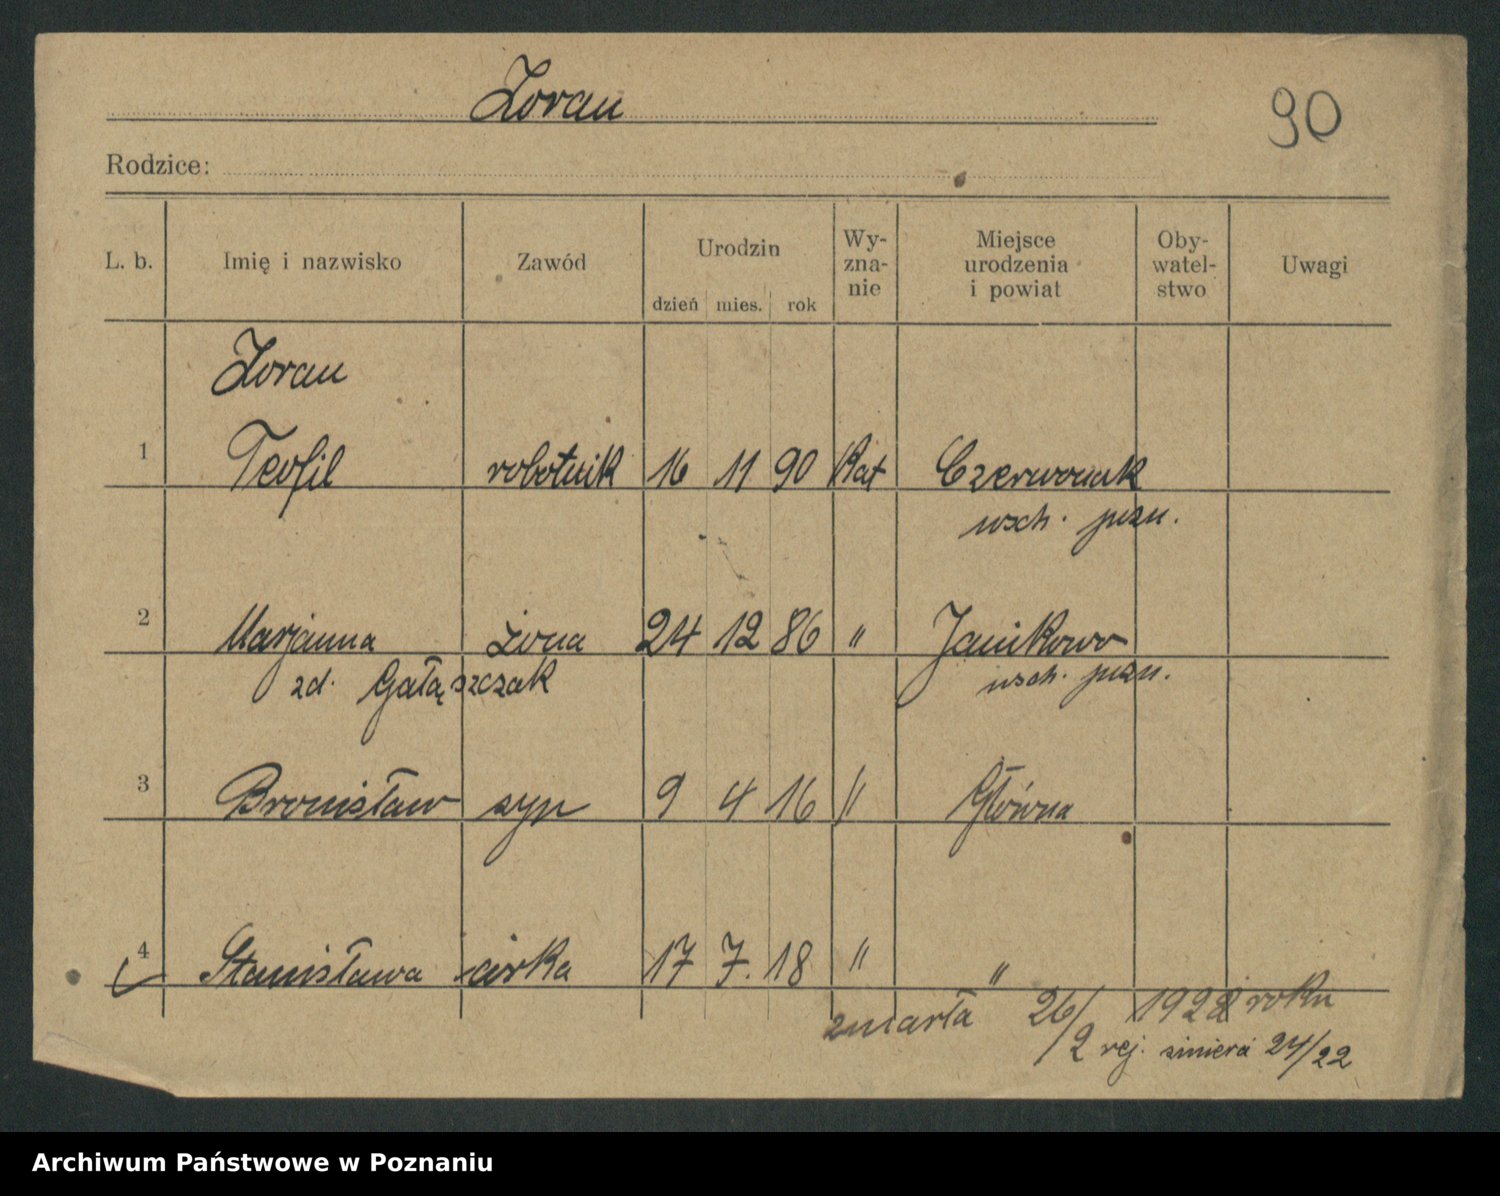 Zoran
90
Rodzice:
L. b. Imię i nazwisko Zawód Urodzin dzień mies. rok Wy-zna-nie Miejsce urodzenia i powiat Oby-watel-stwo Uwagi
Zoran
1 Teofil robotnik 16 11 90 Kat Czerwonak
wsch. pozn.
2 Marjanna żona 24 12 86 " Janikowo
zd. Gałąszczak wsch. pozn.
3 Bronisław syn 9 4 16 " Główna
4 Stanisława córka 17 7. 18 " "
zmarła 26/2 1922 roku
rej. śmierci 24/22
Archiwum Państwowe w Poznaniu